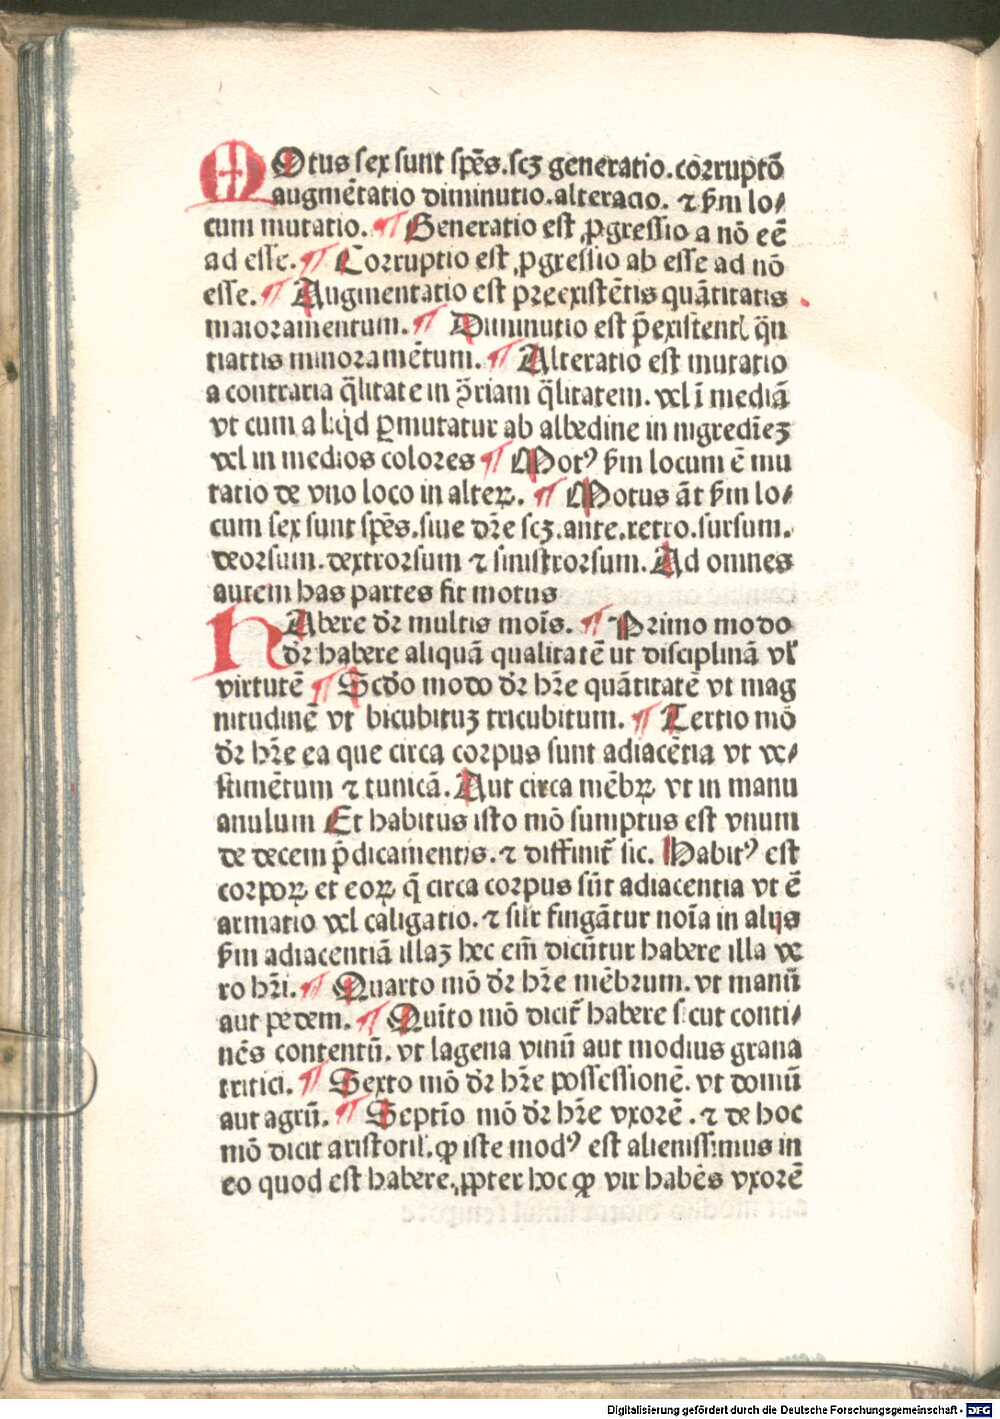 MOtus sex sunt spēs.scꝫ generatio.corruptō
augmētatio diminutio.alteracio. ⁊ ẜm lo⸗
cum mutatio. ¶ Generatio est ꝓgressio a nō eē
ad esse. ¶ Corruptio est ꝓgressio ab esse ad nō
esse. ¶ Augmentatio est preexistētis quātitatis
maioramentum. ¶ Diminutio est p̄existentl̛ q̄n
tiattis minoramētum. ¶ Alteratio est mutatio
a contraria q̄litate in ꝯ̄riam q̄litatem. vel ī mediā
vt cum aliqd̛ ꝑmutatur ab albedine in nigredīeꝫ
vel in medios colores ¶ Motꝰ ẜm locum ē mu
tatio de vno loco in alteꝝ. ¶ Motus āt ẜm lo⸗
cum sex sunt spēs.siue dr̄e scꝫ.ante.retro.sursum.
deorsum.dextrorsum ⁊ sinistrorsum. Ad omnes
autem has partes fit motus
HAbere dr̄ multis moīs. ¶ Primo modo
dr̄ habere aliquā qualitatē ut disciplinā vl̛
virtutē ¶ Scdo modo dr̄ hr̄e quātitatē vt mag
nitudinē vt bicubituꝫ tricubitum. ¶ Tertio mō
dr̄ hr̄e ea que circa corpus sunt adiacētia vt ve⸗
stimētum ⁊ tunicā. Aut circa mēbꝝ vt in manu
anulum Et habitus isto mō sumptus est vnum
de decem p̄dicamentis. ⁊ diffinit̄ sic. Habitꝰ est
corpoꝝ et eoꝝ q̄ circa corpus sūt adiacentia vt ē
armatio vel caligatio. ⁊ sil̛r fingātur noīa in alijs
ẜm adiacentiā illaꝫ hec em̄ dicūtur habere illa ve
ro hr̄i. ¶ Quarto mō dr̄ hr̄e mēbrum. vt manū
aut pedem. ¶ Quīto mō dicit̄ habere sicut conti⸗
nēs contentū. vt lagena vinū aut modius grana
tritici. ¶ Sexto mō dr̄ hr̄e possessionē. vt domū
aut agrū. ¶ Septīo mō dr̄ hr̄e vxorē. ⁊ de hoc
mō dicit aristotil̛.ꝙ iste modꝰ est alienissimus in
eo quod est habere.ꝓpter hoc ꝙ vir habēs vxorē
Digitalisierung gefördert durch die Deutsche Forschungsgemeinschaft - DFG